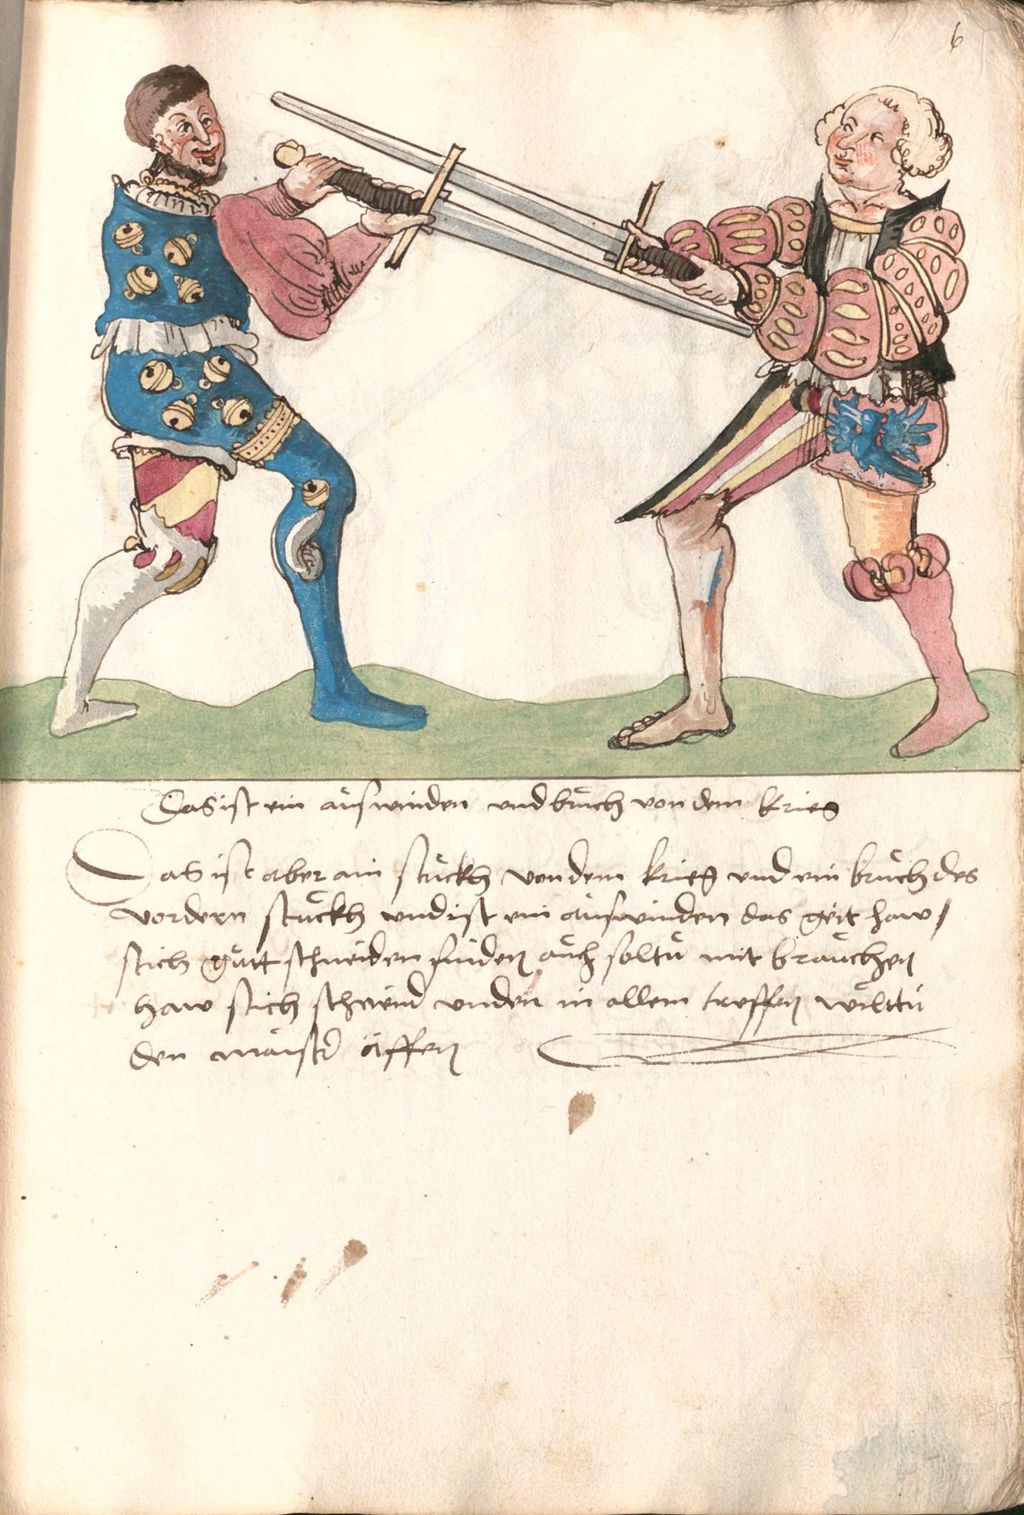 6
Das ist ein aůswinden vnd brůch von dem krieg
Das ist aber ain stůckh von dem krieg vnd ein brůch des
vordern stůckh vnd ist ein aůswinden das geit haw /
stich gůtt schneiden finden aůch soltu mit braůchen
haw stich schneid vnden in allem treffen wiltu
den maister äffen